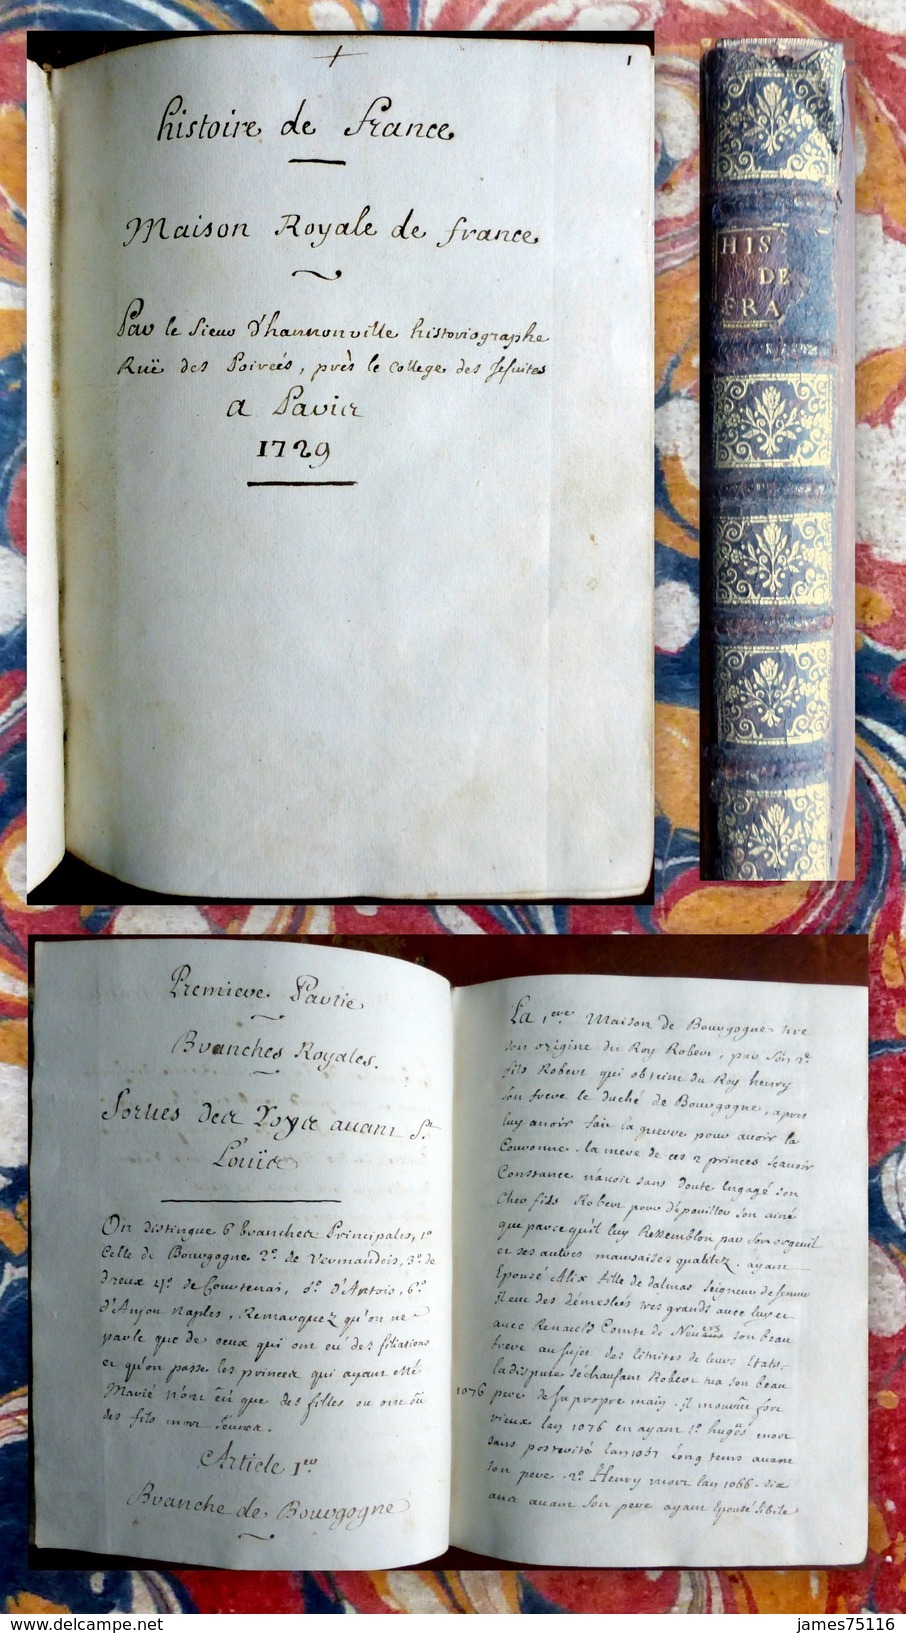 +
1
histoire de France
Maison Royale de france
Par le Sieur D'hannonville historiographe
Ruë des Poireés, près le College des Jesuites
a Paris
1729
HIS
DE
FRA
Premiere Partie
Branches Royales.
Sorties des Roys avant St
Louïs
On distingue 6 branches Principales, 1º
Celle de Bourgogne 2º. de Vermandois, 3º. de
Dreux 4º. de Courtenai, 5º. d'Artois, 6º.
d'Anjou Naples, Remarquez qu'on ne
parle que de ceux qui ont eu des filiations
et qu'on passe les princes qui ayant été
Marié n'ont eü que des filles ou ont eü
des fils mort jeunes.
Article 1er
Branche de Bourgogne
La 1.ere Maison de Bourgogne tire
son origine du Roy Robert, par son 2º.
fils Robert qui obtint du Roy henry
son frere le duché de Bourgogne, apres
luy avoir fait la guerre pour avoir la
Couronne. la mere de ces 2 princes scavoir
Constance n'avoit sans doute Engagé son
Cher fils Robert pour dépouiller son ainé
que parce quil luy Ressembloit par son orgueil
et ses autres mauvaises qualitez. ayant
Epousé Alix fille de dalmas Seigneur de semur
il eut des démeslés tres grands avec luy et
avec Renauld Comte de Nevers son beau
frere au sujet des limites de leurs Etats.
la dispute s'échaufant Robert tua son beau
1076 pere de sa propre main. il mourut fort
vieux lan 1076 en ayant 1º hugües mort
sans posterité lan 1057 Long tems avant
son pere. 2º. Henry mort lan 1066. dix
ans avant son pere ayant Epousé Sibile
delcampe.net
james75116